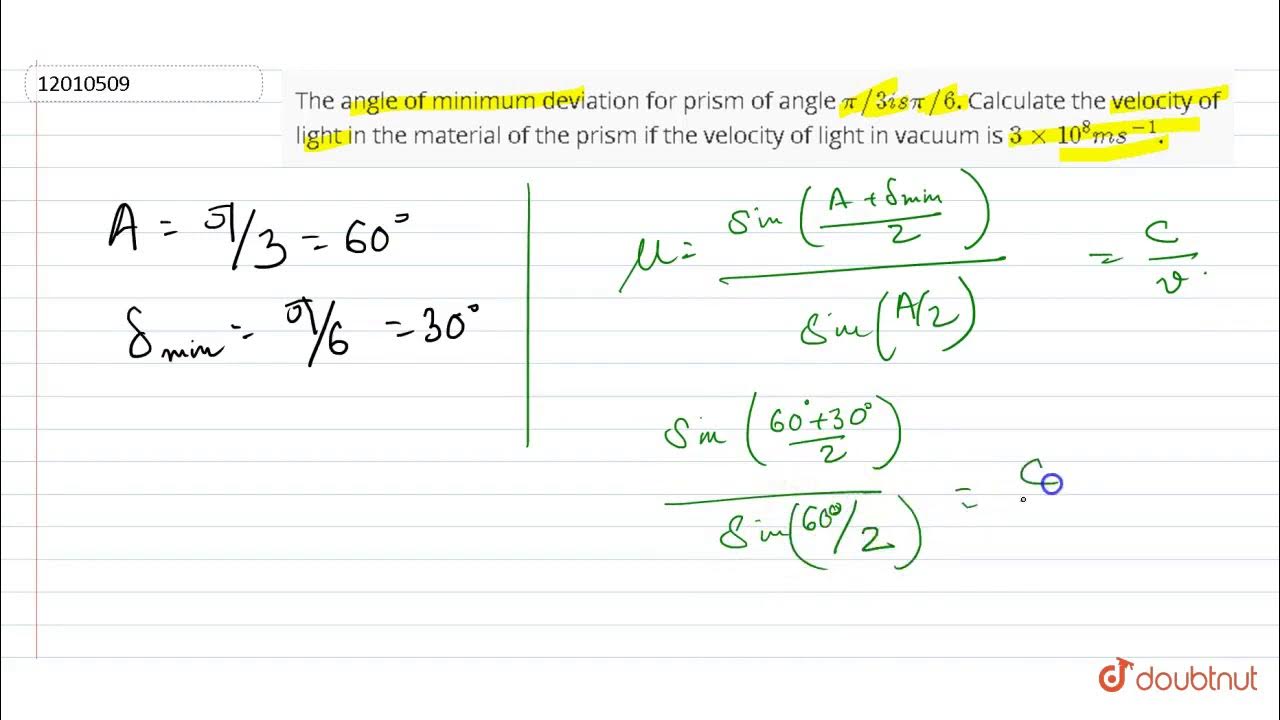 12010509
The angle of minimum deviation for prism of angle π/3isπ/6. Calculate the velocity of
light in the material of the prism if the velocity of light in vacuum is 3 × 10⁸ms⁻¹.
A = π/3 = 60°
δmin = π/6 = 30°
μ = sin((A + δmin)/2) / sin(A/2) = C/v
sin((60°+30°)/2) / sin(60°/2) = C
doubtnut